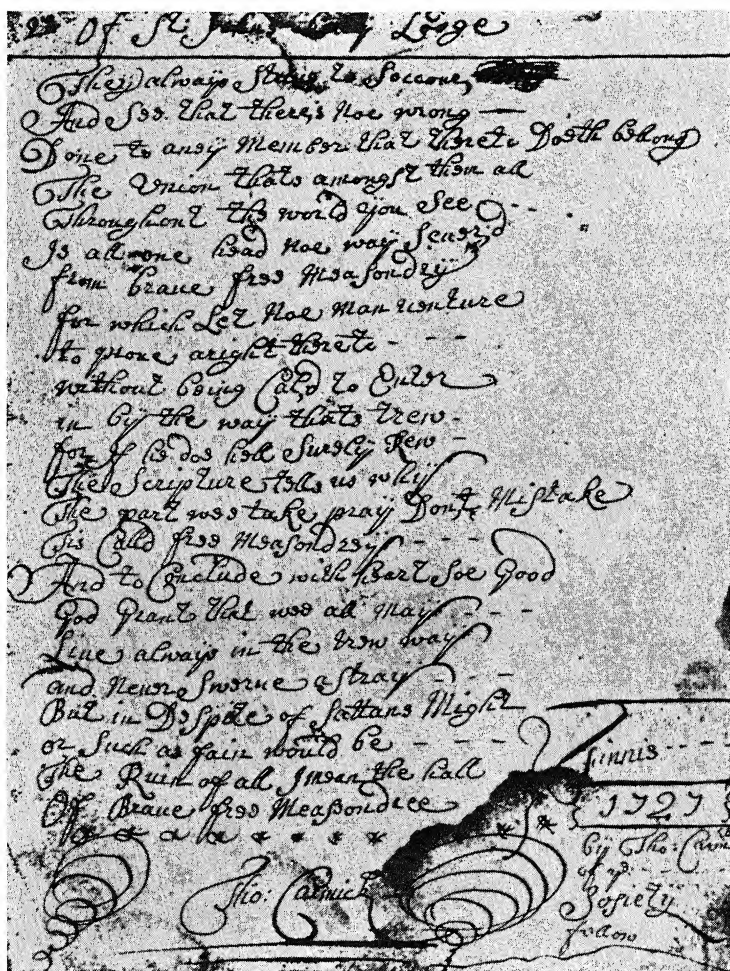 Of St: Lodge
They always to Soccore
And See that there's Noe wrong
Done to aney Member that thereto Doeth belong
The Union thats amongst them all
Throughout the world you See
Is all one head Noe way Severd
from brave free Measondry
for which Let Noe Man venture
to prove aright thereto
without being Calld to Enter
in by the way thats trew
for if he dos hell Surely Rew
The Scripture tells us why
The part wee take pray Dont Mistake
Tis Calld free Measondrey
And to Conclude with heart Soe Good
God Grant that wee all May
Live always in the trew way
and Never Swerve astray
But in Despite of Sattans Might
or Such as fain would be
The Ruin of all I mean the hall
Of Brave free Meassondree
finnis
1727
Tho: Carmick
by Tho: Carm
of ye
Sosiety
follow